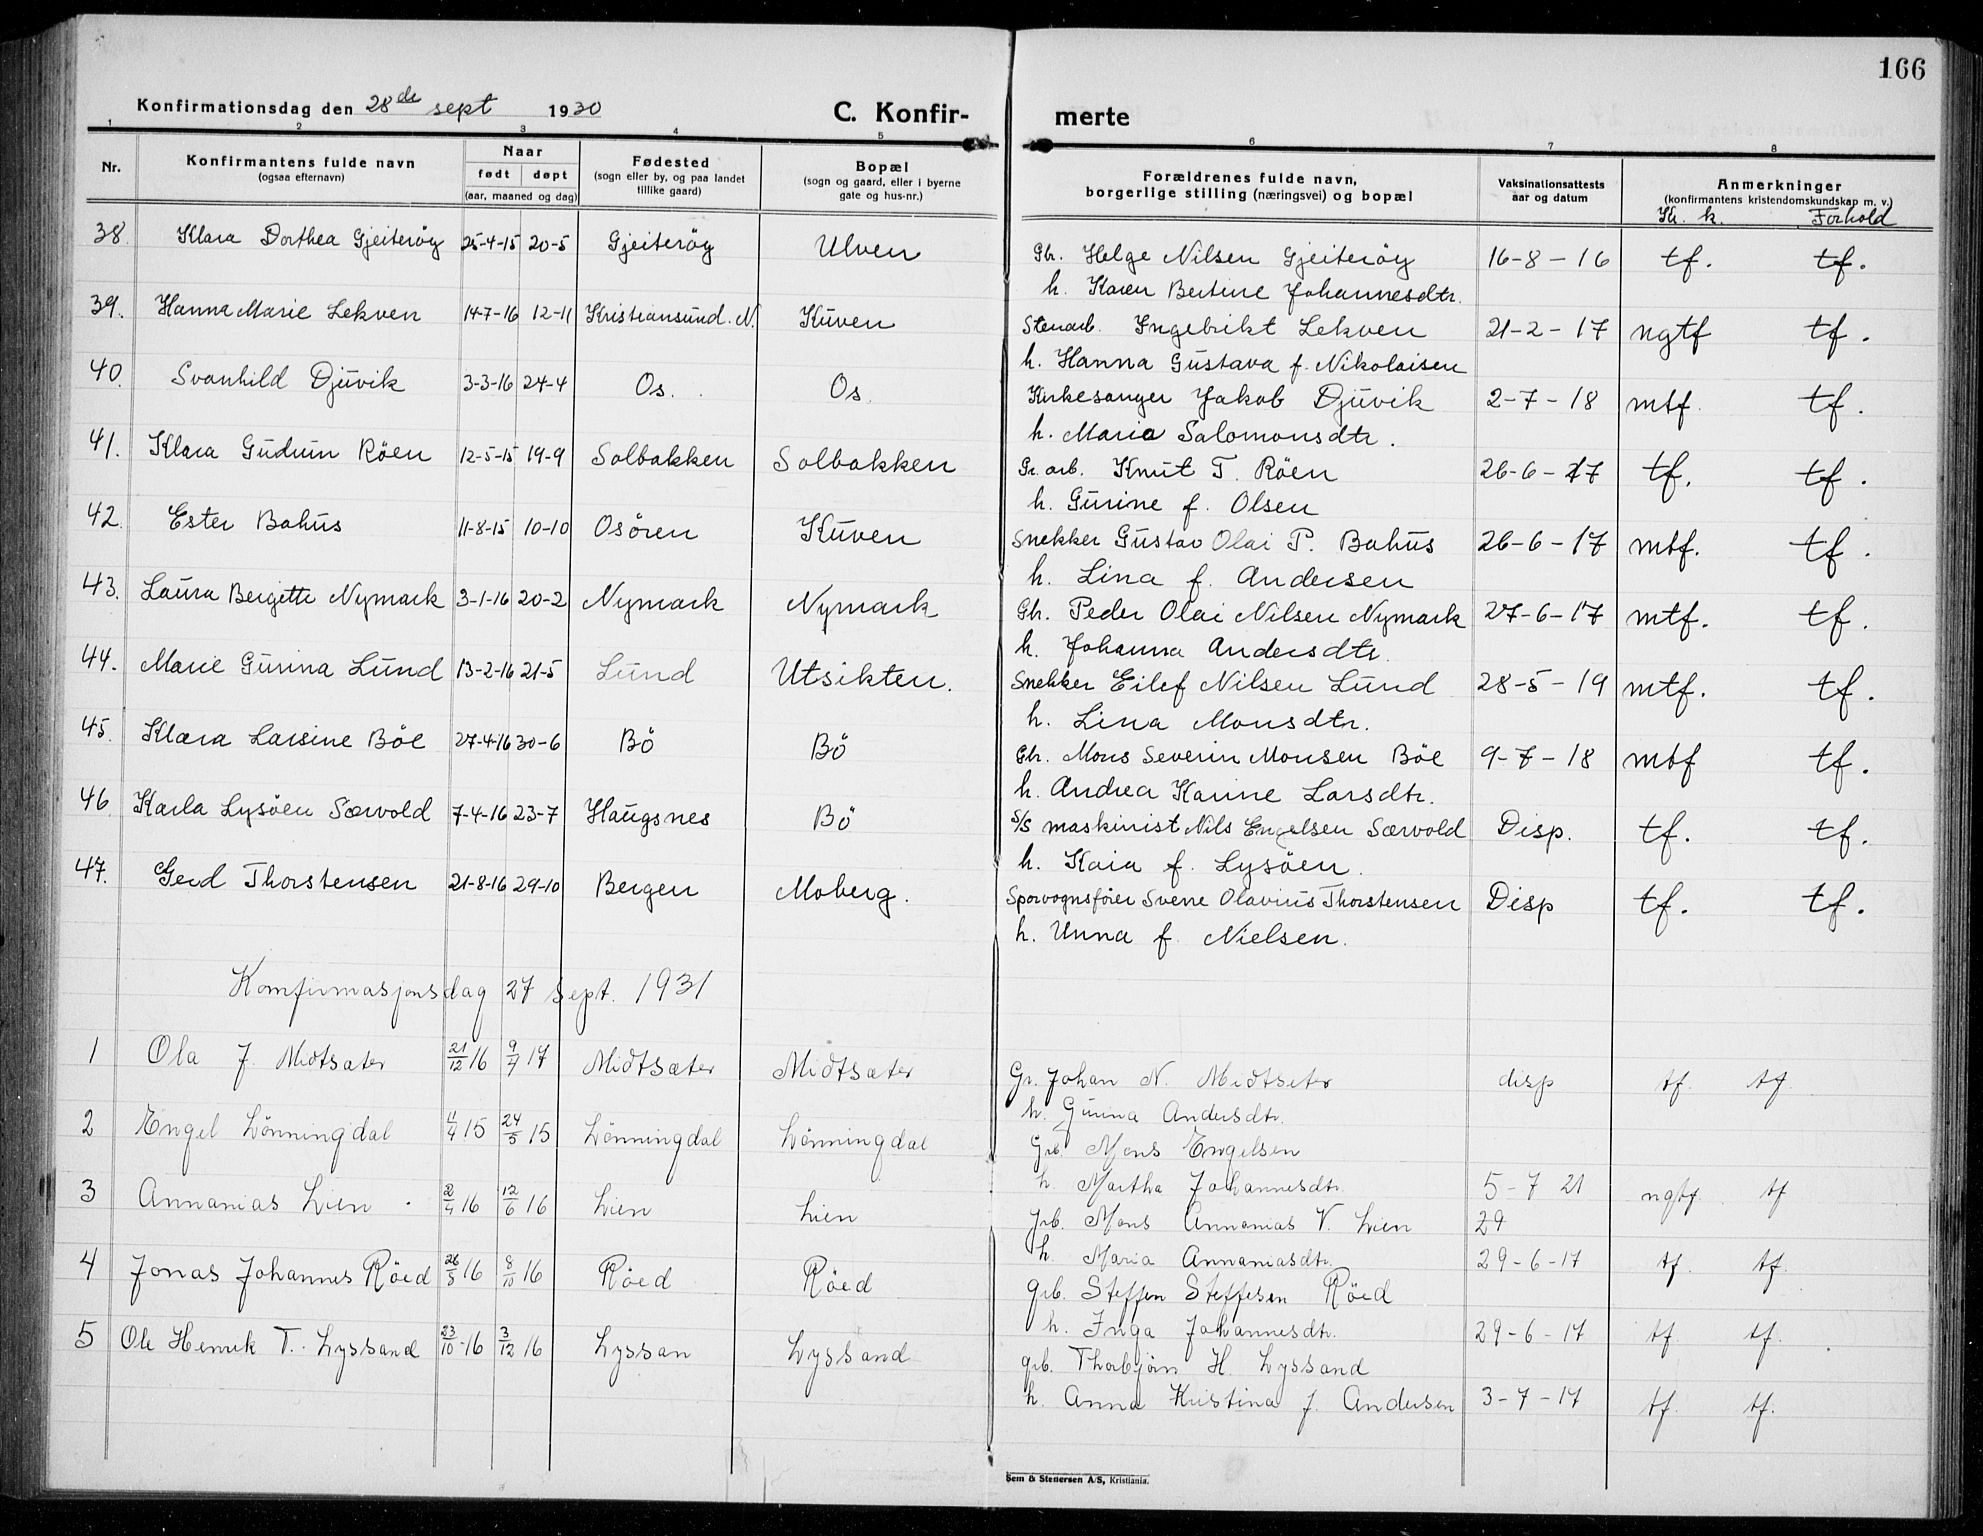 166
Konfirmationsdag den 28de sept 1930
C. Konfir-
merte
1 2 3 4 5 6 7 8
Nr.
Konfirmantens fulde navn
(ogsaa efternavn)
Naar
født døpt
(aar, maaned og dag)
Fødested
(sogn eller by, og paa landet
tillike gaard)
Bopæl
(sogn og gaard, eller i byerne
gate og hus-nr.)
Forældrenes fulde navn,
borgerlige stilling (næringsvei) og bopæl
Vaksinationsattests
aar og datum
Anmerkninger
(konfirmantens kristendomskundskap m. v.)
Kr. k. Forhold
38. Klara Dorthea Gjeiteröy 25-4-15 20-5 Gjeiteröy Ulven Gbr. Helge Nilsen Gjeiteröy 16-8-16 tf. tf.
h. Karen Bertine Johannesdtr.
39. Hanna Marie Lekven 14-7-16 12-11 Kristiansund. N. Kuven Stenarb. Ingebrikt Lekven 21-2-17 ngtf tf.
h. Hanna Gustava f. Nikolaisen
40. Svanhild Djuvik 3-3-16 24-4 Os. Os. Kirkesanger Jakob Djuvik 2-7-18 mtf. tf.
h. Maria Salomonsdtr.
41. Klara Gudrun Röen 12-5-15 19-9 Solbakken Solbakken Gr. arb. Knut T. Röen 26-6-17 tf. tf.
h. Gurine f. Olsen
42. Ester Bahus 11-8-15 10-10 Osören Kuven Snekker Gustav Olai P. Bahus 26-6-17 mtf. tf.
h. Lina f. Andersen
43. Laura Bergitte Nymark 3-1-16 20-2 Nymark Nymark Gbr. Peder Olai Nilsen Nymark 27-6-17 mtf. tf.
h. Johanna Andersdtr.
44. Marie Gurina Lund 13-2-16 21-5 Lund Utsikten. Snekker Eilef Nilsen Lund 28-5-19 mtf. tf.
h. Lina Monsdtr.
45. Klara Larsine Böe 27-4-16 30-6 Bö Bö Gbr. Mons Severin Monsen Böe 9-7-18 mtf tf.
h. Andrea Karine Larsdtr.
46. Karla Lysöen Særvold 7-4-16 23-7 Haugsnes Bö S/S maskinist Nils Engelsen Særvold Disp. tf. tf.
h. Kaia f. Lysöen.
47. Gerd Thorstensen 21-8-16 29-10 Bergen Moberg. Sporvognsförer Sverre Olavius Thorstensen Disp tf. tf.
h. Unna f. Nielsen.
Konfirmasjonsdag 27 sept. 1931
1 Ola J. Midtsæter 21/12 16 9/4 17 Midtsæter Midtsæter Gr. Johan N. Midtseter disp tf. tf
h. Gurina Andersdtr.
2 Engel Lönningdal 11/4 15 24/5 15 Lönningdal Lönningdal Grb. Mons Engelsen
h. Martha Johannesdtr. 5-7 21 ngtf. tf
3 Annanias Lien 2/4 16 12/6 16 Lien Lien grb. Mons Annanias V. Lien 29
h. Maria Annaniasdtr. 29-6-17 tf. tf.
4 Jonas Johannes Röed 26/8 16 8/10 16 Röed Röed grb. Steffen Steffesen Röed
h. Inga Johannesdtr. 29-6-17 tf tf.
5 Ole Henrik T. Lyssand 23/10-16 3/12 16 Lyssan Lyssand grb. Thorbjörn H. Lyssand
h. Anna Kristina f. Andersen 3-7-17 tf. tf.
Sem & Stenersen A/S, Kristiania.